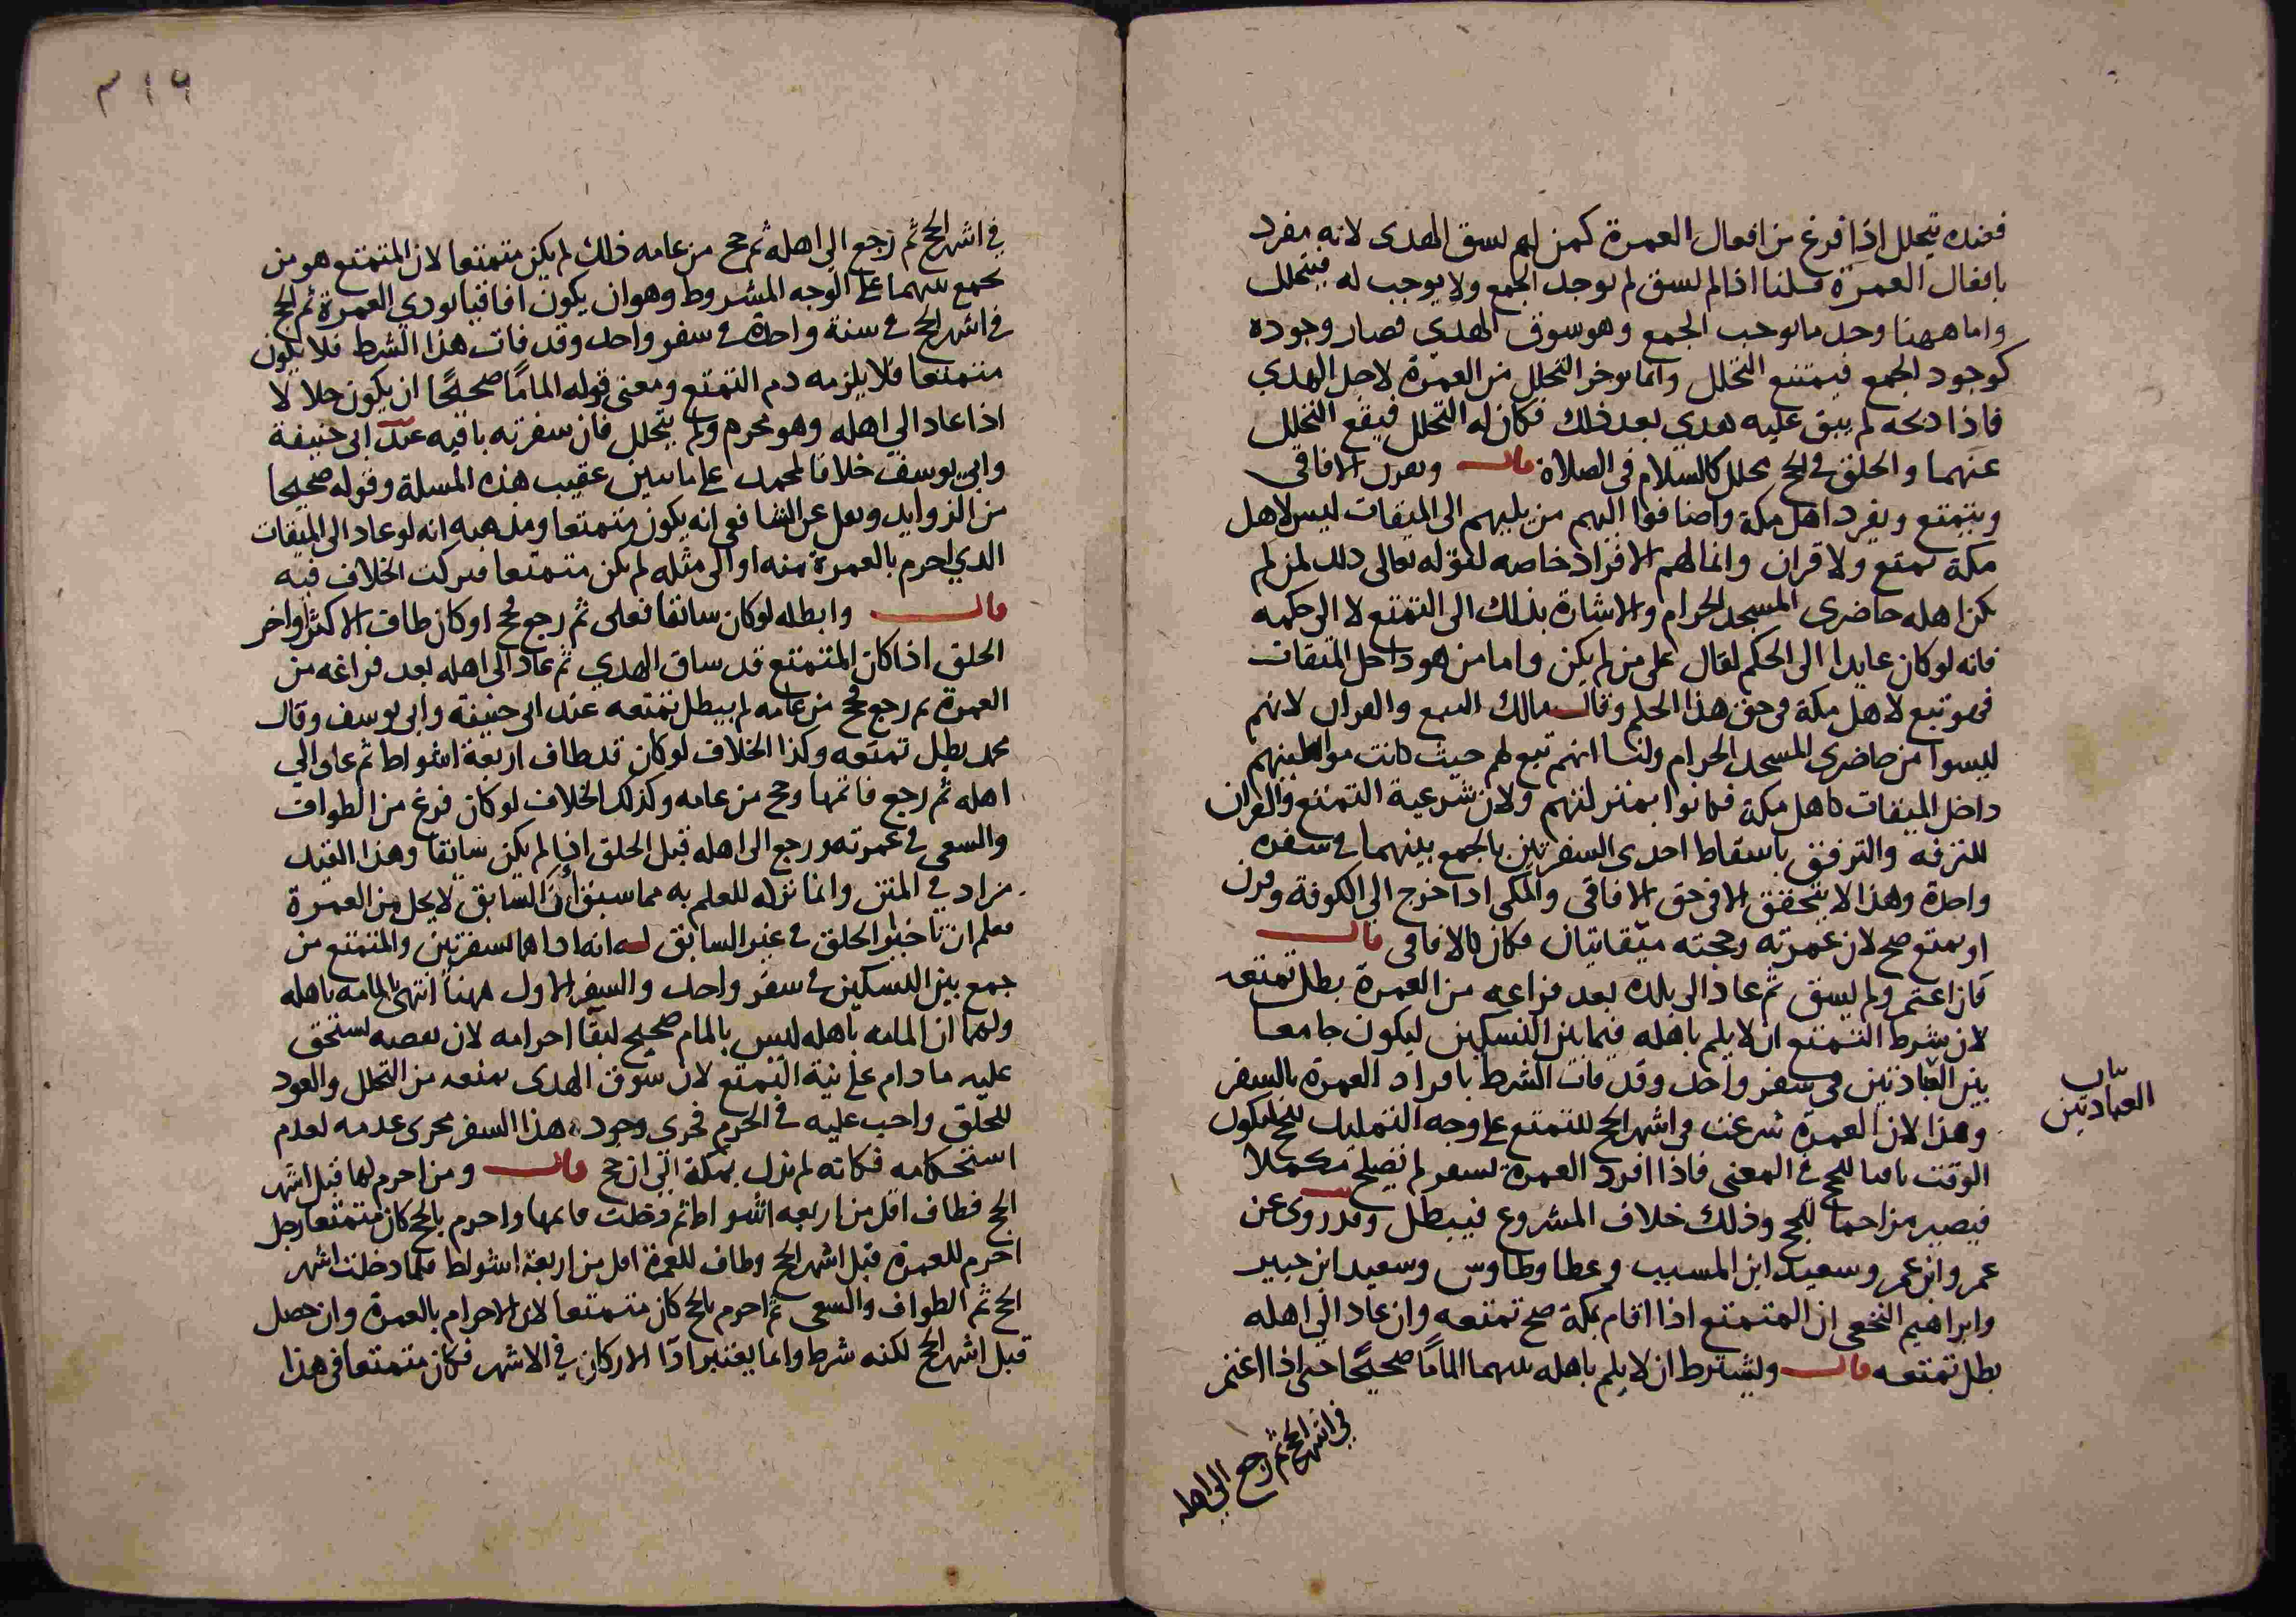 فعنده يتحلل اذا فرغ من افعال العمرة كمن لم يسق الهدى لانه مفرد
بافعال العمرة قلنا اذا لم يسق لم يوجد الجمع ولا يوجب له فيتحلل
واما ههنا وجد ما يوجب الجمع وهو سوق الهدي فصار وجوده
كوجود الجمع فيمتنع التحلل وانما يوخر التحلل من العمرة لاجل الهدي
فاذا ذبحه لم يبق عليه هدي بعد ذلك فكان له التحلل فيقع التحلل
عنهما والحلق في الحج محلل كالسلام في الصلاة قال ويقرن الافاقي
ويتمتع ويفرد اهل مكة واضافوا اليهم من يليهم الى الميقات ليس لاهل
مكة تمتع ولا قران وانما لهم الافراد خاصه لقوله تعالى ذلك لمن لم
يكن اهله حاضرى المسجد الحرام والاشارة بذلك الى التمتع لا الى حكمه
فانه لو كان عايدا الى الحكم لقال على من لم يكن واما من هو داخل الميقات
فهو تبع لاهل مكة في حق هذا الحكم وقال مالك التمتع والقران لانهم
ليسوا من حاضرى المسجد الحرام ولنا انهم تبع لهم حيث كانت مواطينهم
داخل الميقات كاهل مكة فكانوا بمنزلتهم ولان شرعية التمتع والقران
للترفه والترفق باسقاط احدى السفرتين بالجمع بينهما في سفره
واحدة وهذا لا يتحقق الا في حق الافاقي والمكي اذا خرج الى الكوفة وقرن
او تمتع صح لان عمرته وحجته ميقاتيان فكان كالافاقي قال
فان اعتمر ولم يسق ثم عاد الى بلده بعد فراغه من العمرة بطل تمتعه
لان شرط التمتع ان لا يلم باهله فيما بين النسكين ليكون جامعا
بين العبادتين في سفر واحد وقد فات الشرط بافراد العمرة بالسفر
بيان
العبادتين
وهذا لان العمرة شرعت في اشهر الحج للتمتع على وجه التمليك للحج ليكون
الوقت باقيا للحج في المعنى فاذا افرد العمرة بسفر لم تصلح مكملا
فيصير مزاحما للحج وذلك خلاف المشروع فيبطل وقد روى عن
عمر وابن عمر وسعيد ابن المسيب وعطا وطاوس وسعيد ابن جبير
وابراهيم النخعي ان المتمتع اذا اقام بمكة صح تمتعه وان عاد الى اهله
بطل تمتعه قال ويشترط ان لا يلم باهله بينهما الماما صحيحا حتى اذا اعتمر
في اشهر الحج ثم رجع الى اهله
٣١٩
في اشهر الحج ثم رجع الى اهله ثم حج من عامه ذلك لم يكن متمتعا لان المتمتع هو من
يجمع بينهما على الوجه المشروط وهو ان يكون افاقيا يودي العمرة ثم الحج
في اشهر الحج في سنة واحدة في سفر واحد وقد فات هذا الشرط فلا يكون
متمتعا فلا يلزمه دم التمتع ومعنى قوله الماما صحيحا ان يكون حلالا
اذا عاد الى اهله وهو محرم ولم يتحلل فان سفرته باقيه عند ابى حنيفة
وابي يوسف خلافا لمحمد على ما نبين عقيب هذه المسلة وقوله صحيحا
من الزوايد ونقل عن الشافعي انه يكون متمتعا ومذهبه انه لو عاد الى الميقات
الذي احرم بالعمرة منه او الى مثله لم يكن متمتعا فتركت الخلاف فيه
قال وابطله لو كان سائقا فعلى ثم رجع فحج او كان طاف الاكثر او اخر
الحلق اذا كان المتمتع قد ساق الهدي ثم عاد الى اهله بعد فراغه من
العمرة ثم رجع فحج من عامه لم يبطل تمتعه عند ابى حنيفة وابى يوسف وقال
محمد بطل تمتعه وكذا الخلاف لو كان قد طاف اربعة اشواط ثم عاد الى
اهله ثم رجع فاتمها وحج من عامه وكذلك الخلاف لو كان فرغ من الطواف
والسعى في عمرته ورجع الى اهله قبل الحلق اذا لم يكن سايقا وهذا القيد
مراد في المتن وانما تركه للعلم به مما سبق ان السايق لا يحل من العمرة
فعلم ان تاخير الحلق في غير السايق له انه اداهما بسفرتين والمتمتع من
جمع بين النسكين في سفر واحد والسفر الاول ههنا انتهى بالمامه باهله
ولهما ان المامه باهله ليس بالمام صحيح لبقا احرامه لان بعضه يستحق
عليه ما دام على نية التمتع لان سوق الهدى يمنعه من التحلل والعود
للحلق واجب عليه في الحرم فجرى وجود هذا السفر مجرى عدمه لعدم
استحكامه فكانه لم يزل بمكة الى ان حج قال ومن احرم لها قبل اشهر
الحج فطاف اقل من اربعه اشواط ثم دخلت فاتمها واحرم بالحج كان متمتعا رجل
احرم للعمرة قبل اشهر الحج وطاف للعمرة اقل من اربعة اشواط فلما دخلت اشهر
الحج تم الطواف والسعى ثم احرم بالحج كان متمتعا لان الاحرام بالعمرة وان حصل
قبل اشهر الحج لكنه شرط وانما يعتبر ادآ الاركان في الاشهر فكان متمتعا في هذا